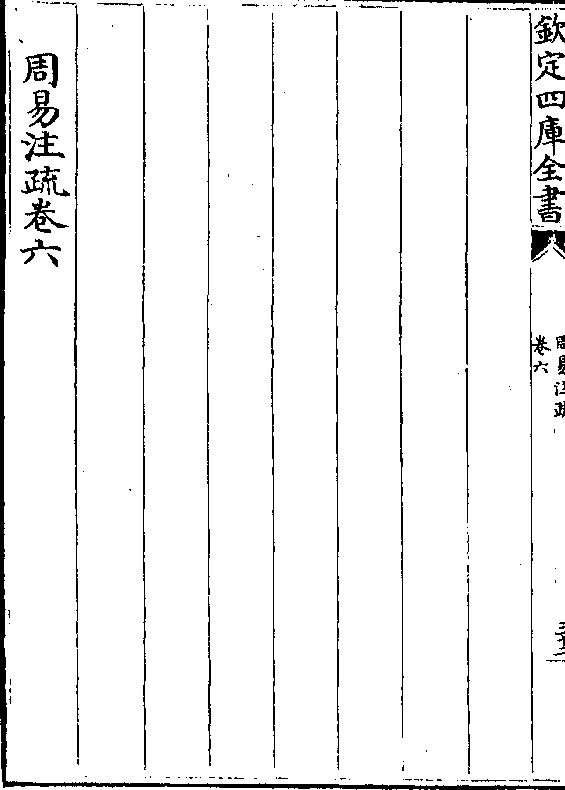 欽定四庫全書
周易注疏
卷六
周易注疏卷六